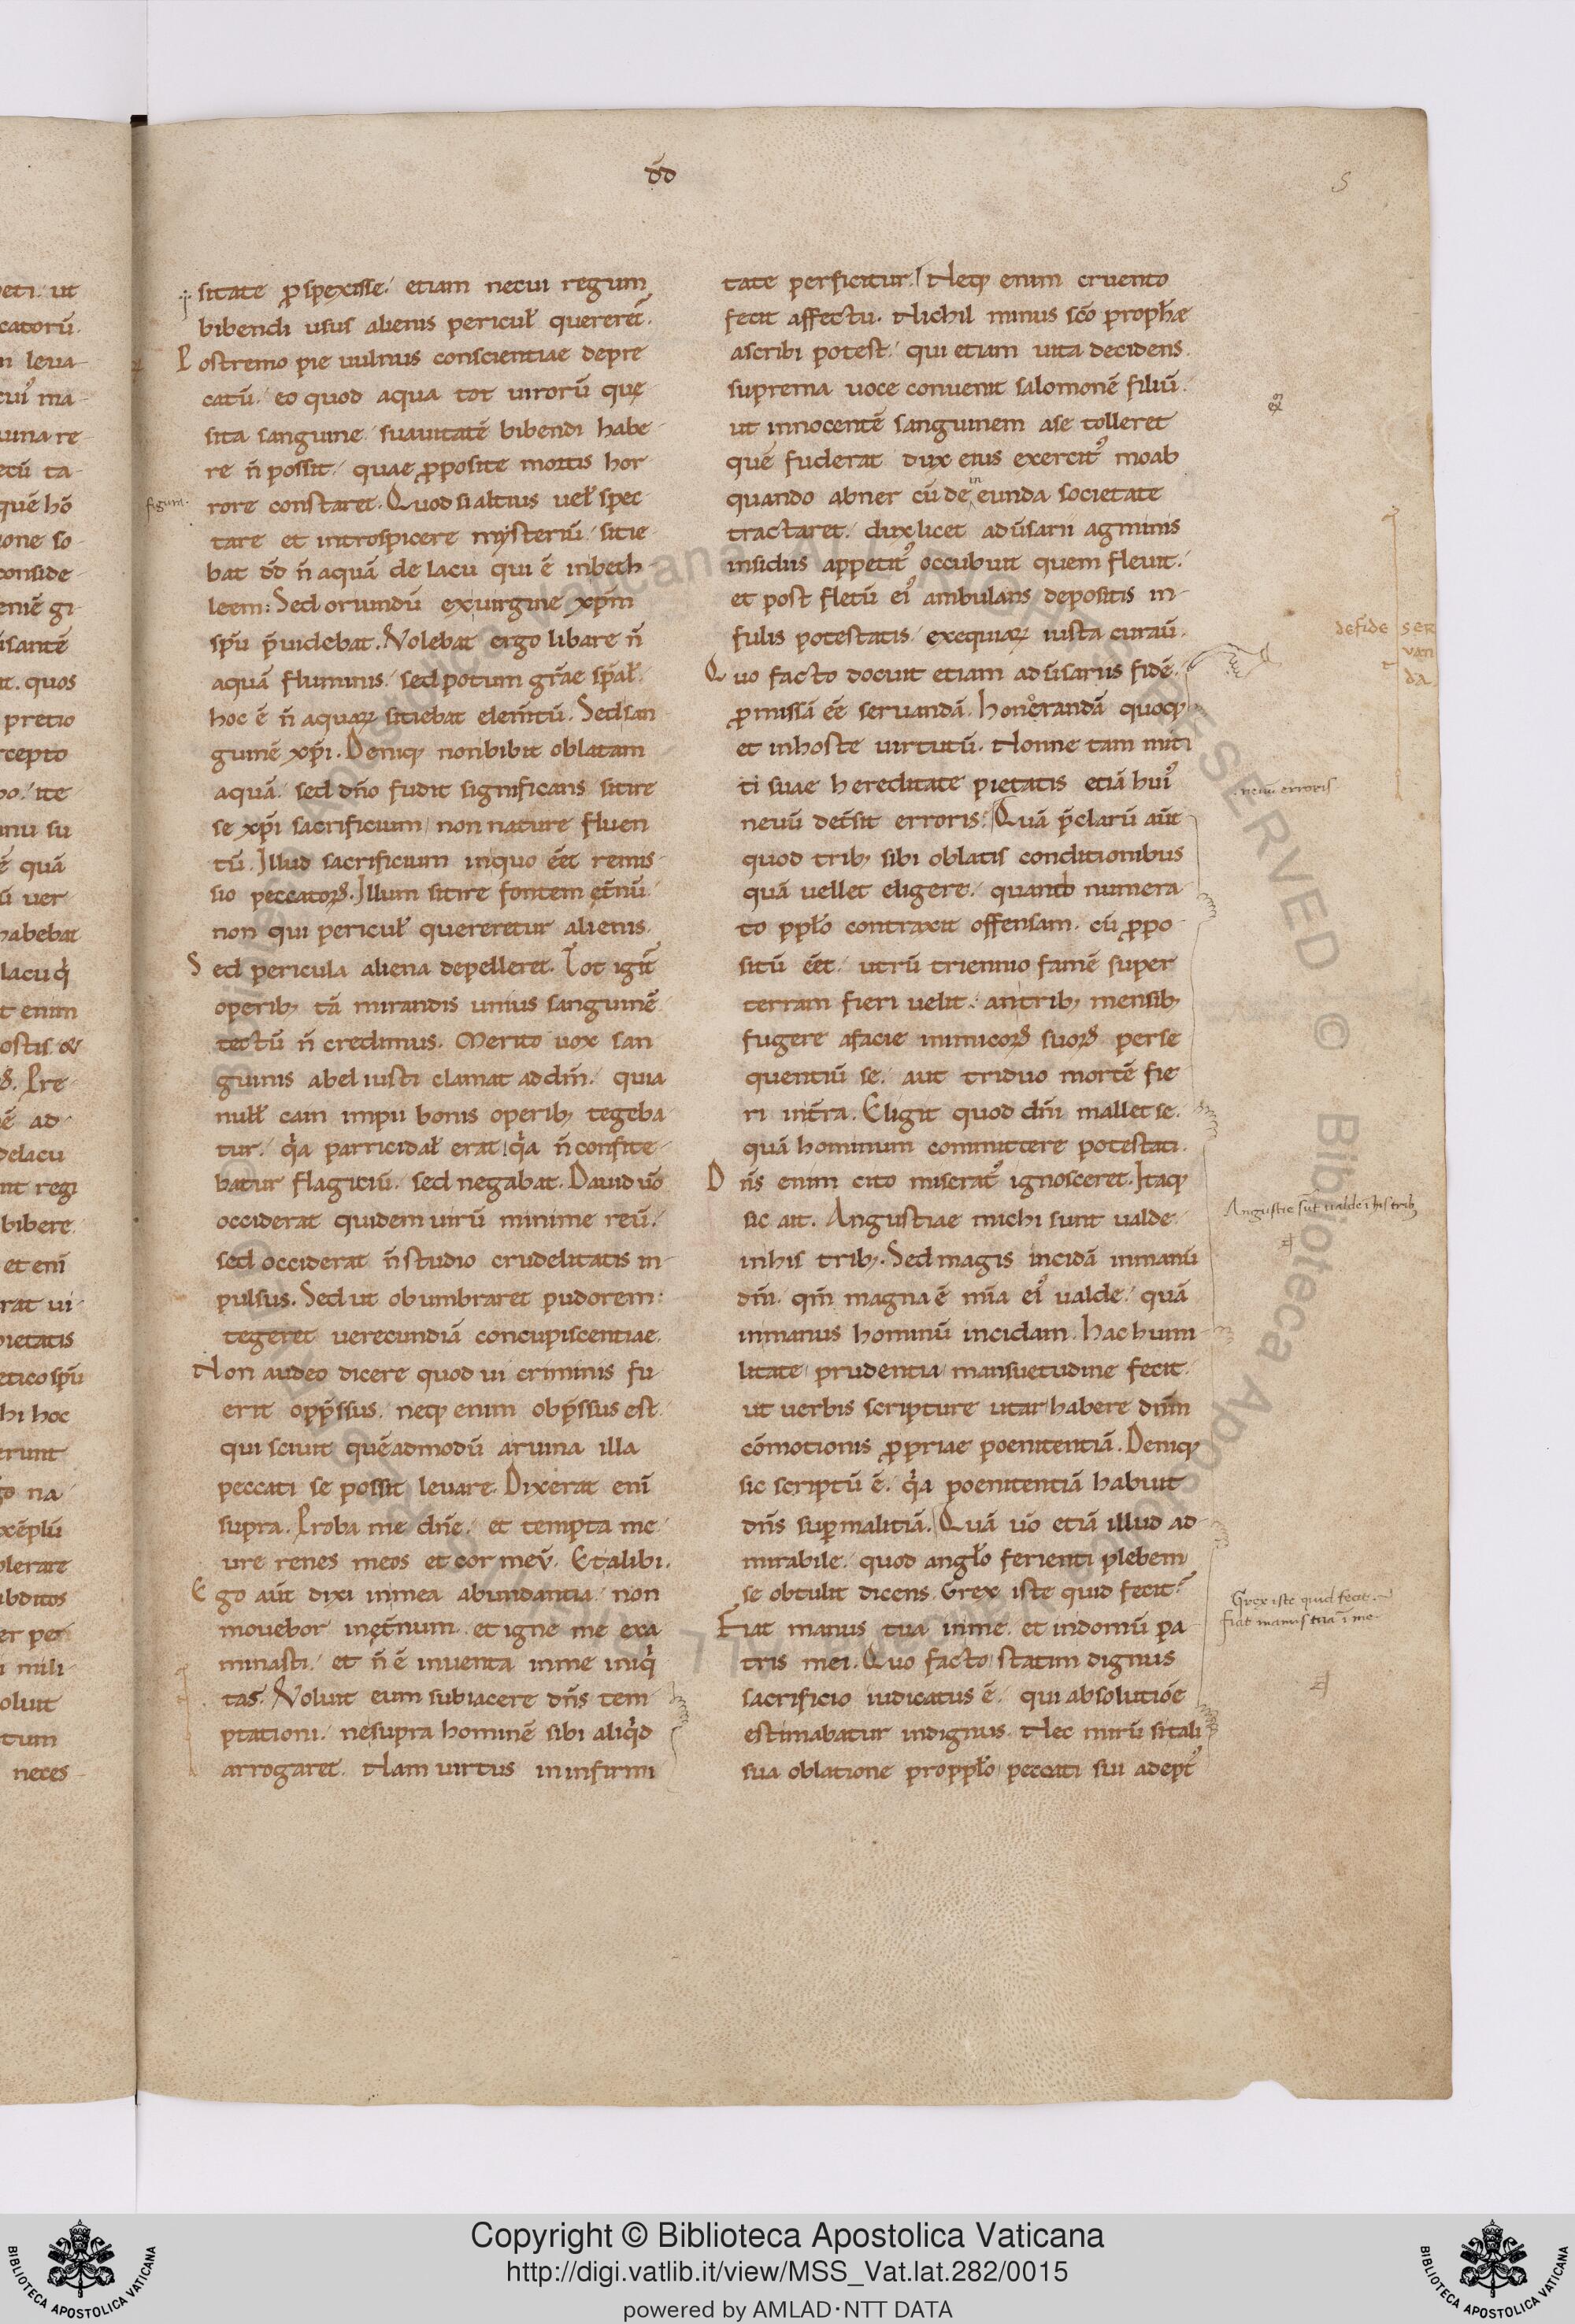 dd̄
5
sitate ꝓspexisse. etiam necui regum
bibendi usus alienis pericuł quereret̃.
Postremo pie uulnus conscientiae depre
catũ. eo quod aqua tot uirorũ quę
sita sanguine. suauitatẽ bibendi habe
re ñ possit. quae ꝓposite mortis hor
rore constaret. Quod si altius ueł spec
tare et introspicere mysteriũ. sitie
bat dd̄ ñ aquã de lacu qui ẽ inbeth
leem: Sed oriundũ exuirgine xp̄m
sp̄u p̄uidebat. Volebat ergo libare ñ
aquã fluminis. sed potum gr̄ae sp̄ał.
hoc ẽ ñ aquaꝝ sitiebat elem̃tũ. Sed san
guinẽ xp̄i. Deniqꝫ nonbibit oblatam
aquã. sed dño fudit significans sitire
se xp̄i sacrificium non nature fluen
tũ. Illud sacrificium inquo eẽt remis
sio peccatoꝝ. Illum sitire fontem et̃nũ
non qui pericuł quereretur alienis.
Sed pericula aliena depelleret. Tot igit̃
operibꝫ tã mirandis unius sanguinẽ
tectũ ñ credimus. Merito uox san
guinis abel iusti clamat addm̄. quia
nułł cain impii bonis operibꝫ tegeba
tur. q̇a parricidał erat q̇a ñ confite
batur flagitiũ. sed negabat. Dauid ůo
occiderat quidem uirũ minime reũ.
sed occiderat ñ studio crudelitatis in
pulsus. Sed ut obumbraret pudorem:
tegeret uerecundiã concupiscentiae.
Non audeo dicere quod ui criminis fu
erit opp̄ssus. neqꝫ enim obp̄ssus est
qui sciuit quẽadmodũ aruina illa
peccati se possit leuare. Dixerat enĩ
supra. Proba me dñe. et tempta me.
ure renes meos et cor meũ. Et alibi.
Ego aũt dixi inmea abundantia non
mouebor inęt̃num. et igne me exa
minasti. et ñ ẽ inuenta inme iniq̇
tas. Noluit eum subiacere dñs tem
ptationi. nesupra hominẽ sibi aliq̇d
arrogaret. Nam uirtus ininfirmi
tate perficitur. Neqꝫ enim cruento
fecit affectu. Nichil minus sc̄o prophæ
ascribi potest. qui etiam uita decidens.
suprema uoce conuenit salomonẽ filiũ.
ut innocentẽ sanguinem ase tolleret
quẽ fuderat dux eius exercitꝰ moab
quando abner cũ de in eunda societate
tractaret. dux licet adũsarii agminis
insidiis appetitꝰ occubuit quem fleuit.
et post fletũ eiꝰ ambulans depositis in
fulis potestatis. exequiaꝝ iusta curaũ.
Quo facto docuit etiam adũsariis fidẽ
ꝓmissã eẽ seruandã. honorandã quoqꝫ
et inhoste uirtutũ. Nonne tam miti
ti suae hereditate pietatis etiã huiꝰ
neuũ det̃sit erroris. Quã p̄clarũ aũt
quod tribꝫ sibi oblatis conditionibus
quã uellet eligere. quando numera
to pplo contraxit offensam. cũ ꝓpo
situ eẽt. utrũ triennio famẽ super
terram fieri uelit. antribꝫ mensibꝫ
fugere afacie inimicoꝝ suoꝝ perse
quentiũ se. aut triduo mortẽ fie
ri int̃ra. Eligit quod dm̄ mallet se.
quã hominum committere potestati.
Dñs enim cito miseratꝰ ignosceret. Itaqꝫ
sic ait. Angustiae michi sunt ualde.
inhis tribꝫ. Sed magis incidã inmanũ
dm̄. qm̄ magna ẽ mĩa eiꝰ ualde. quã
inmanus hominũ incidam. hac humi
litate prudentia mansuetudine fecit.
ut uerbis scripture utar habere dñm
cõmotionis ꝓpriae poenitentiã. Deniqꝫ
sic scriptũ ẽ. q̇a poenitentiã habuit
dñs suꝑmalitiã. Quã ůo etiã illud ad
mirabile. quod angło ferienti plebem
se obtulit dicens. Grex iste quid fecit?
Fiat manus tua inme. et indomũ pa
tris mei. Quo facto statim dignus
sacrificio iudicatus ẽ. qui absolutiõe
estimabatur indignus. Nec mirũ si tali
sua oblatione propplo peccati sui adeptꝰ
figura.
defide seruanda
neuũ erroris
Angustie sũt ualde ĩ his tribꝫ
Grex iste quid fecit.
fiat manus tua ĩ me.
Copyright © Biblioteca Apostolica Vaticana
http://digi.vatlib.it/view/MSS_Vat.lat.282/0015
powered by AMLAD·NTT DATA
BIBLIOTECA APOSTOLICA VATICANA
BIBLIOTECA APOSTOLICA VATICANA